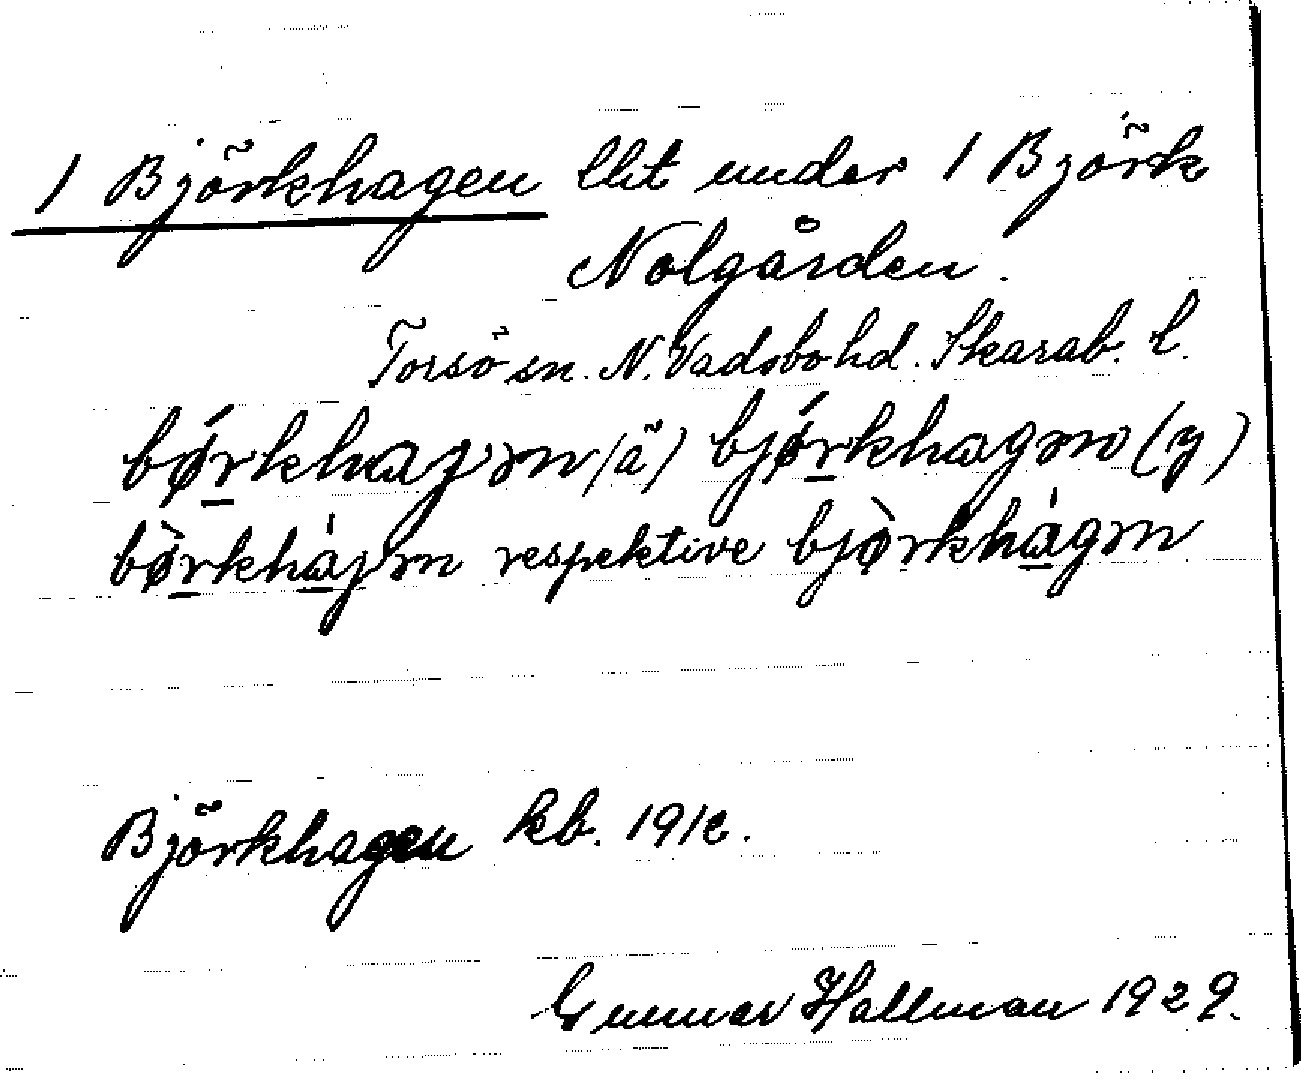 1 Björkhagen lht under 1 Björk
Nolgården.
Torsö sn. N. Vadsbo hd. Skarab. l.
bǿrkhaȷən (ä) bjǿrkhagən (y)
bø̀rkháȷən respektive bjø̀rkhágən
Björkhagen kb. 191
Gunnar Hallman 1929.